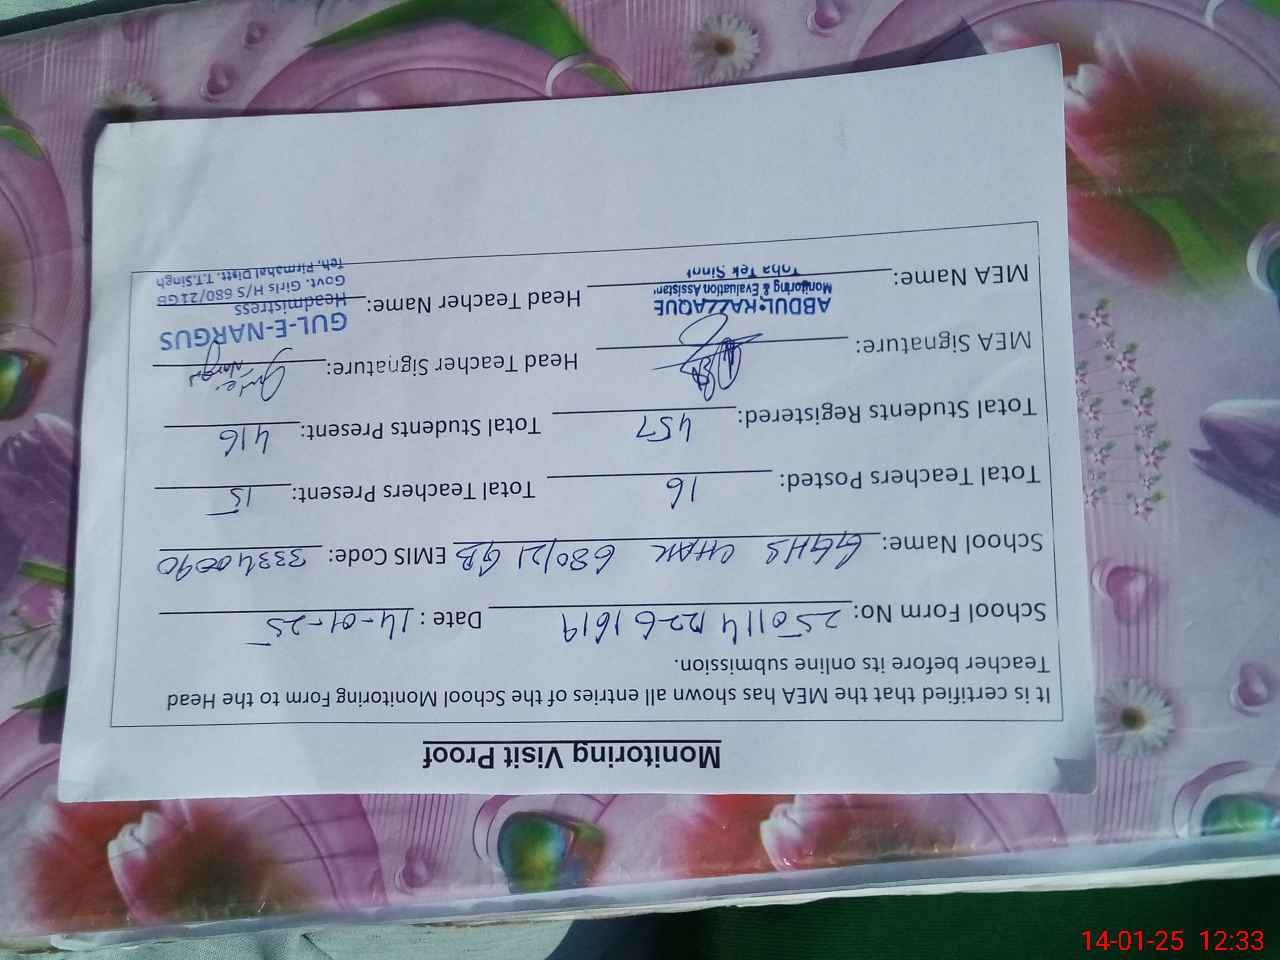 Monitoring Visit Proof
It is certified that the MEA has shown all entries of the School Monitoring Form to the Head
Teacher before its online submission.
School Form No: 25011412261619 Date : 14-01-25
School Name: GGHS CHAK 680/21 GB EMIS Code: 33340090
Total Teachers Posted: 16 Total Teachers Present: 15
Total Students Registered: 457 Total Students Present: 416
MEA Signature: Head Teacher Signature: Gul-e-Nargis
ABDUL RAZZAQUE GUL-E-NARGUS
Monitoring & Evaluation Assistant Headmistress
MEA Name: Head Teacher Name: Govt. Girls H/S 680/21GB
Toba Tek Singh Teh. Pirmahal Distt. T.T.Singh
14-01-25 12:33